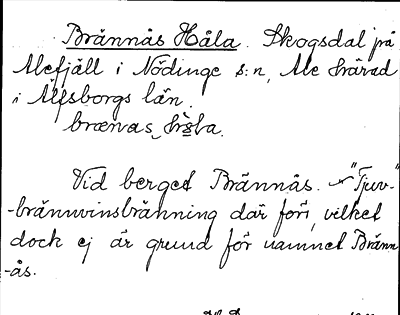 Brännås Håla. Skogsdal på
Alefjäll i Nödinge s:n, Ale härad
i Älfsborgs län.
Vid berget Brännås. "Tjuv-
-bränvinsbränning där förr, vilket
dock ej är grund för namnet Bränn
-ås.